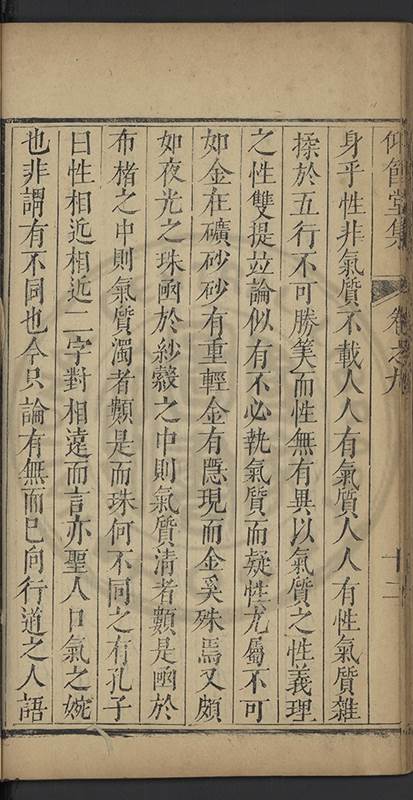 仰節堂集 卷之九 十二
身乎性非氣質不載人人有氣質人人有性氣質雜
揉於五行不可勝筭而性無有異以氣質之性義理
之性雙提並論似有不必執氣質而疑性尤屬不可
如金在礦砂砂有重輕金有隱現而金奚殊焉又頗
如夜光之珠函於紗縠之中則氣質清者類是函於
布楮之中則氣質濁者類是而珠何不同之有孔子
曰性相近相近二字對相遠而言亦聖人口氣之婉
也非謂有不同也今只論有無而已向行道之人語